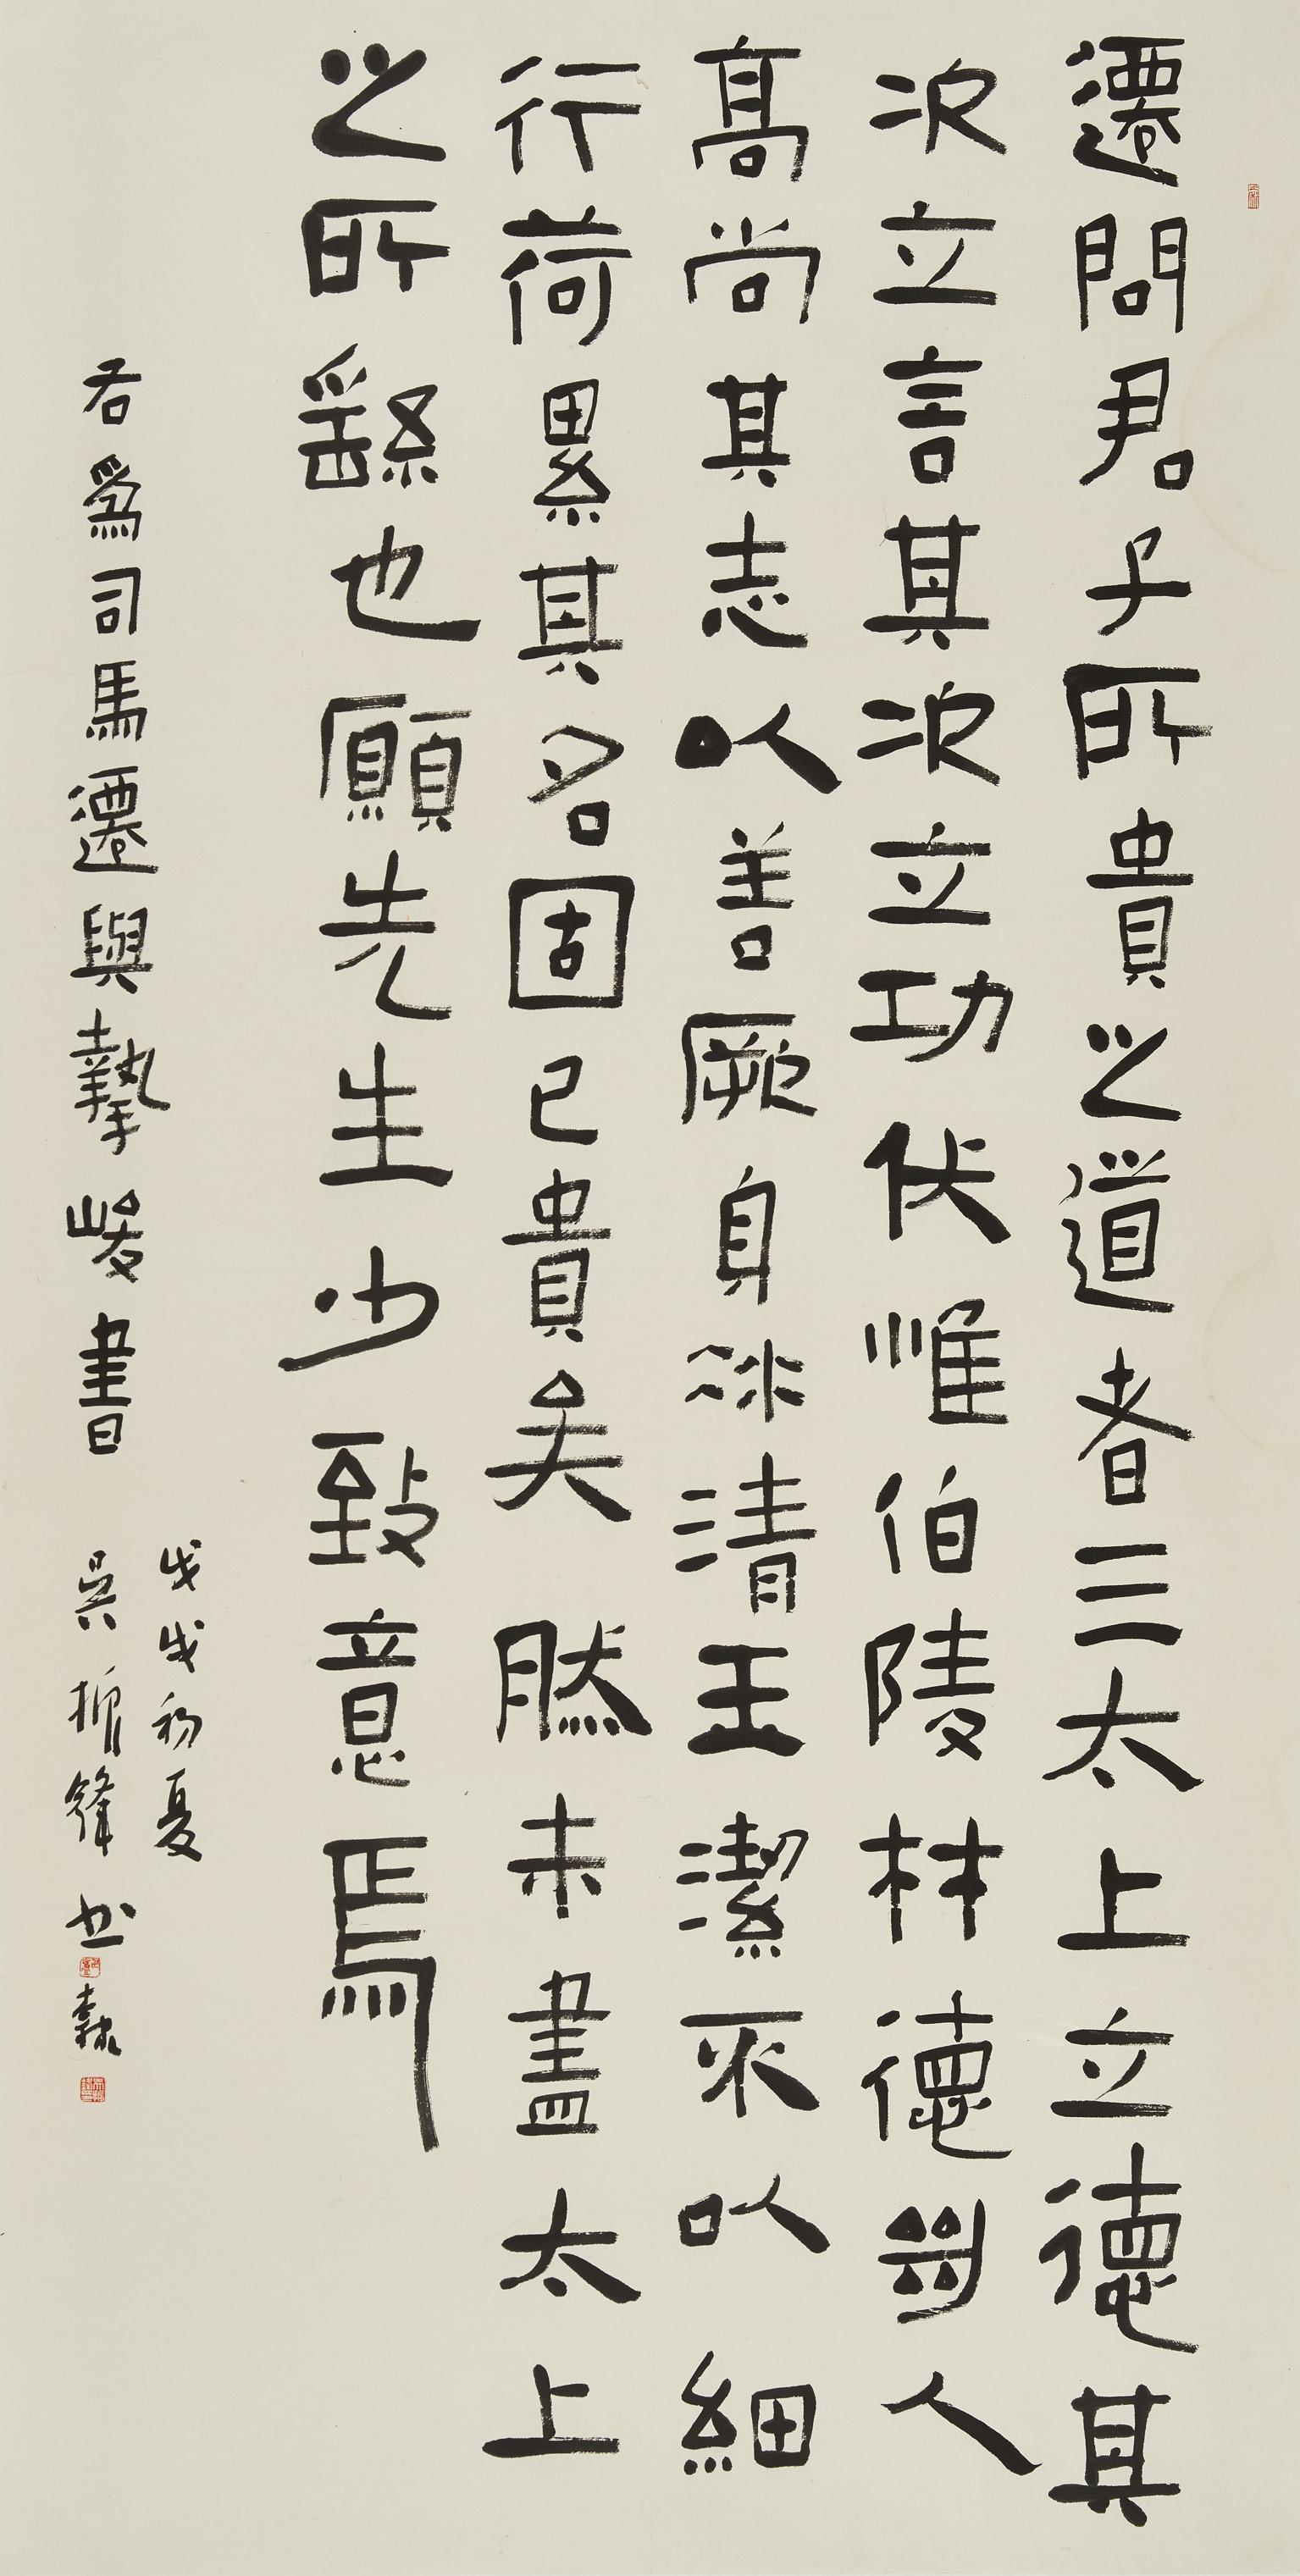 遷聞君子所貴之道者三太上立德其
次立言其次立功伏惟伯陵材德絕人
高尚其志以善厥身冰清玉潔不以細
行荷累其名固已貴矣然未盡太上
之所繇也願先生少致意焉
右為司馬遷與摯峻書
戊戌初夏
吳振鋒書